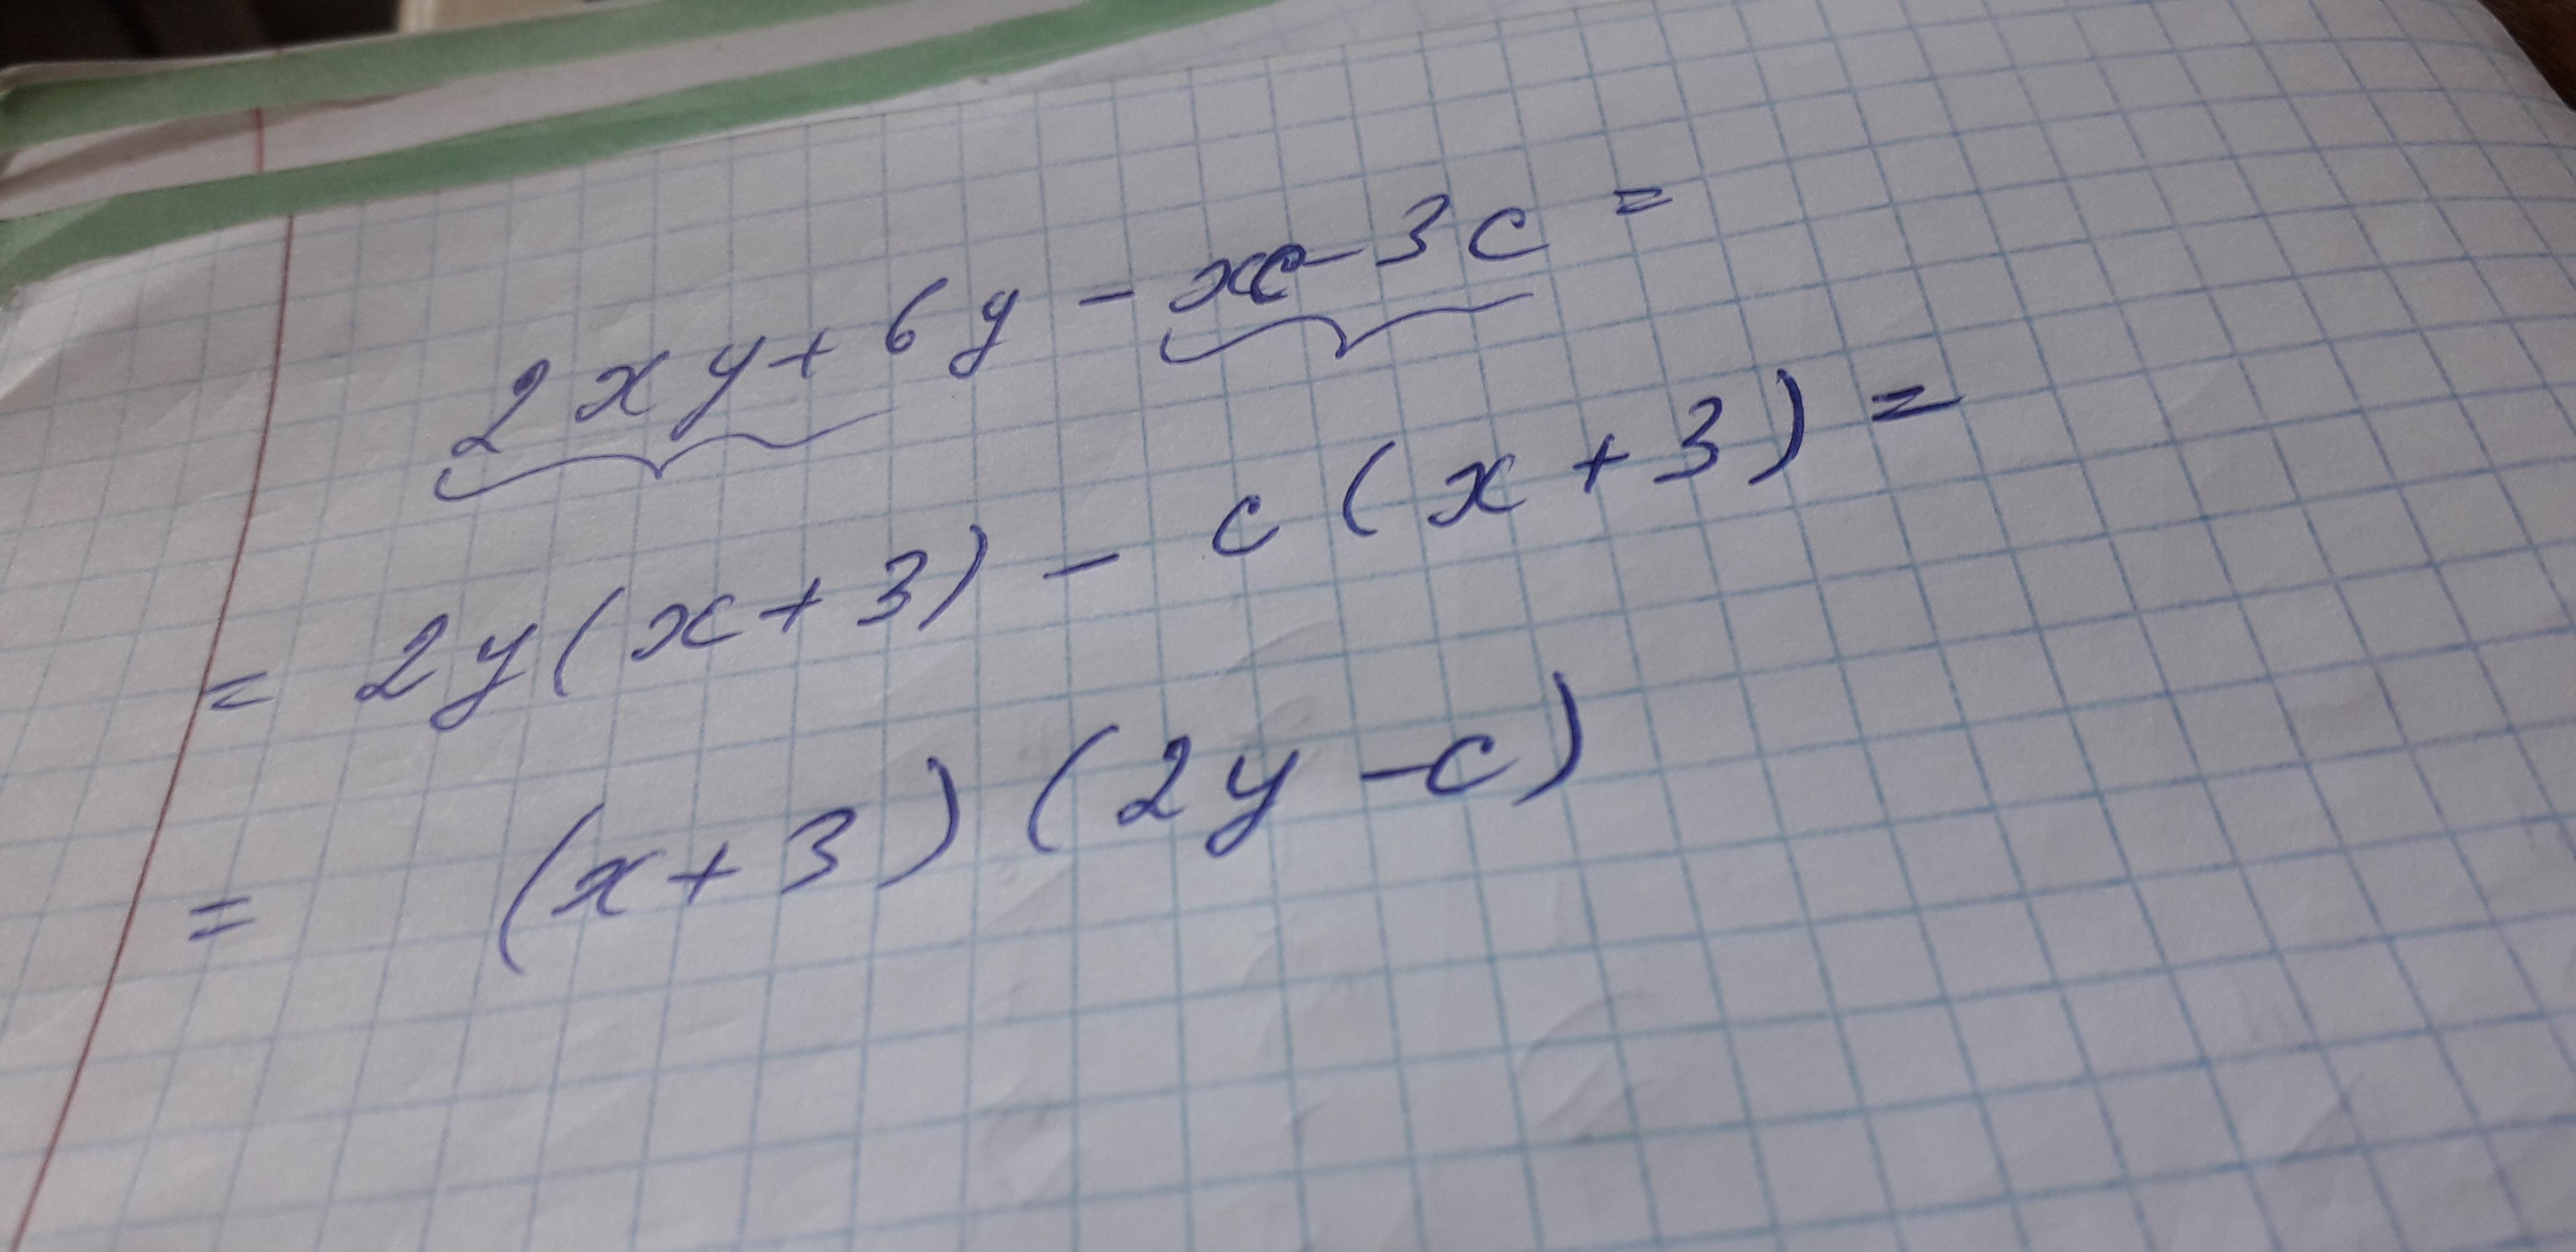 2xy+6y-xc-3c=
=2y(x+3)-c(x+3)=
=(x+3)(2y-c)